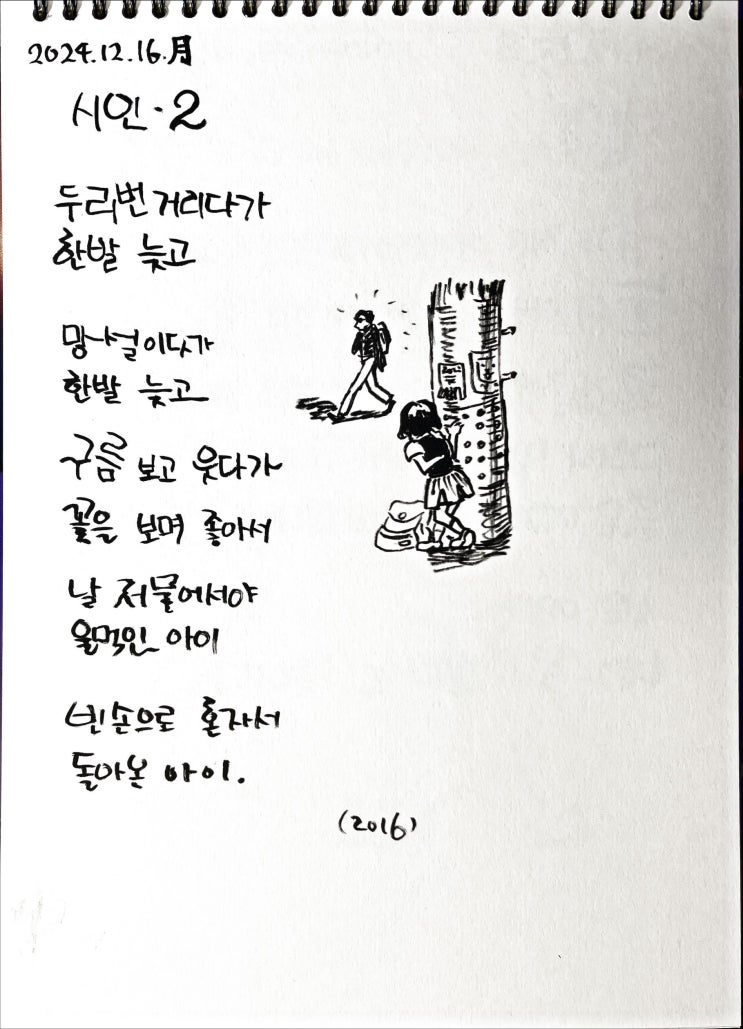 2024.12.16.月
시인·2
두리번거리다가
한발 늦고
망서리다가
한발 늦고
구름 보고 웃다가
꽃을 보며 좋아서
날 저물어서야
울먹인 아이
빈손으로 혼자서
돌아온 아이.
(2016)